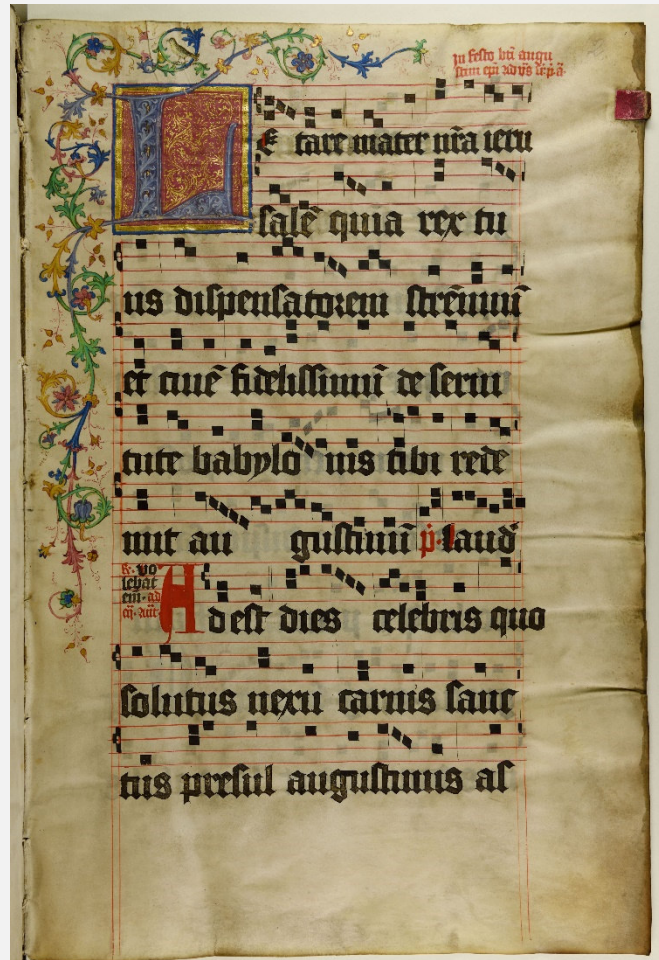 In festo bti augu
stini epi ad vs
LE tare mater nr̃a ieru
salẽ quia rex tu
us dispensatorem strẽnuũ
et ciuẽ fidelissimũ de serui
tute babylo nis tibi rede
mit au gustinũ p̃. laud
R. vo
lebat
ein. ad
A dest dies celebris quo
solutus nexu carnis sanc
tus presul augustinus as